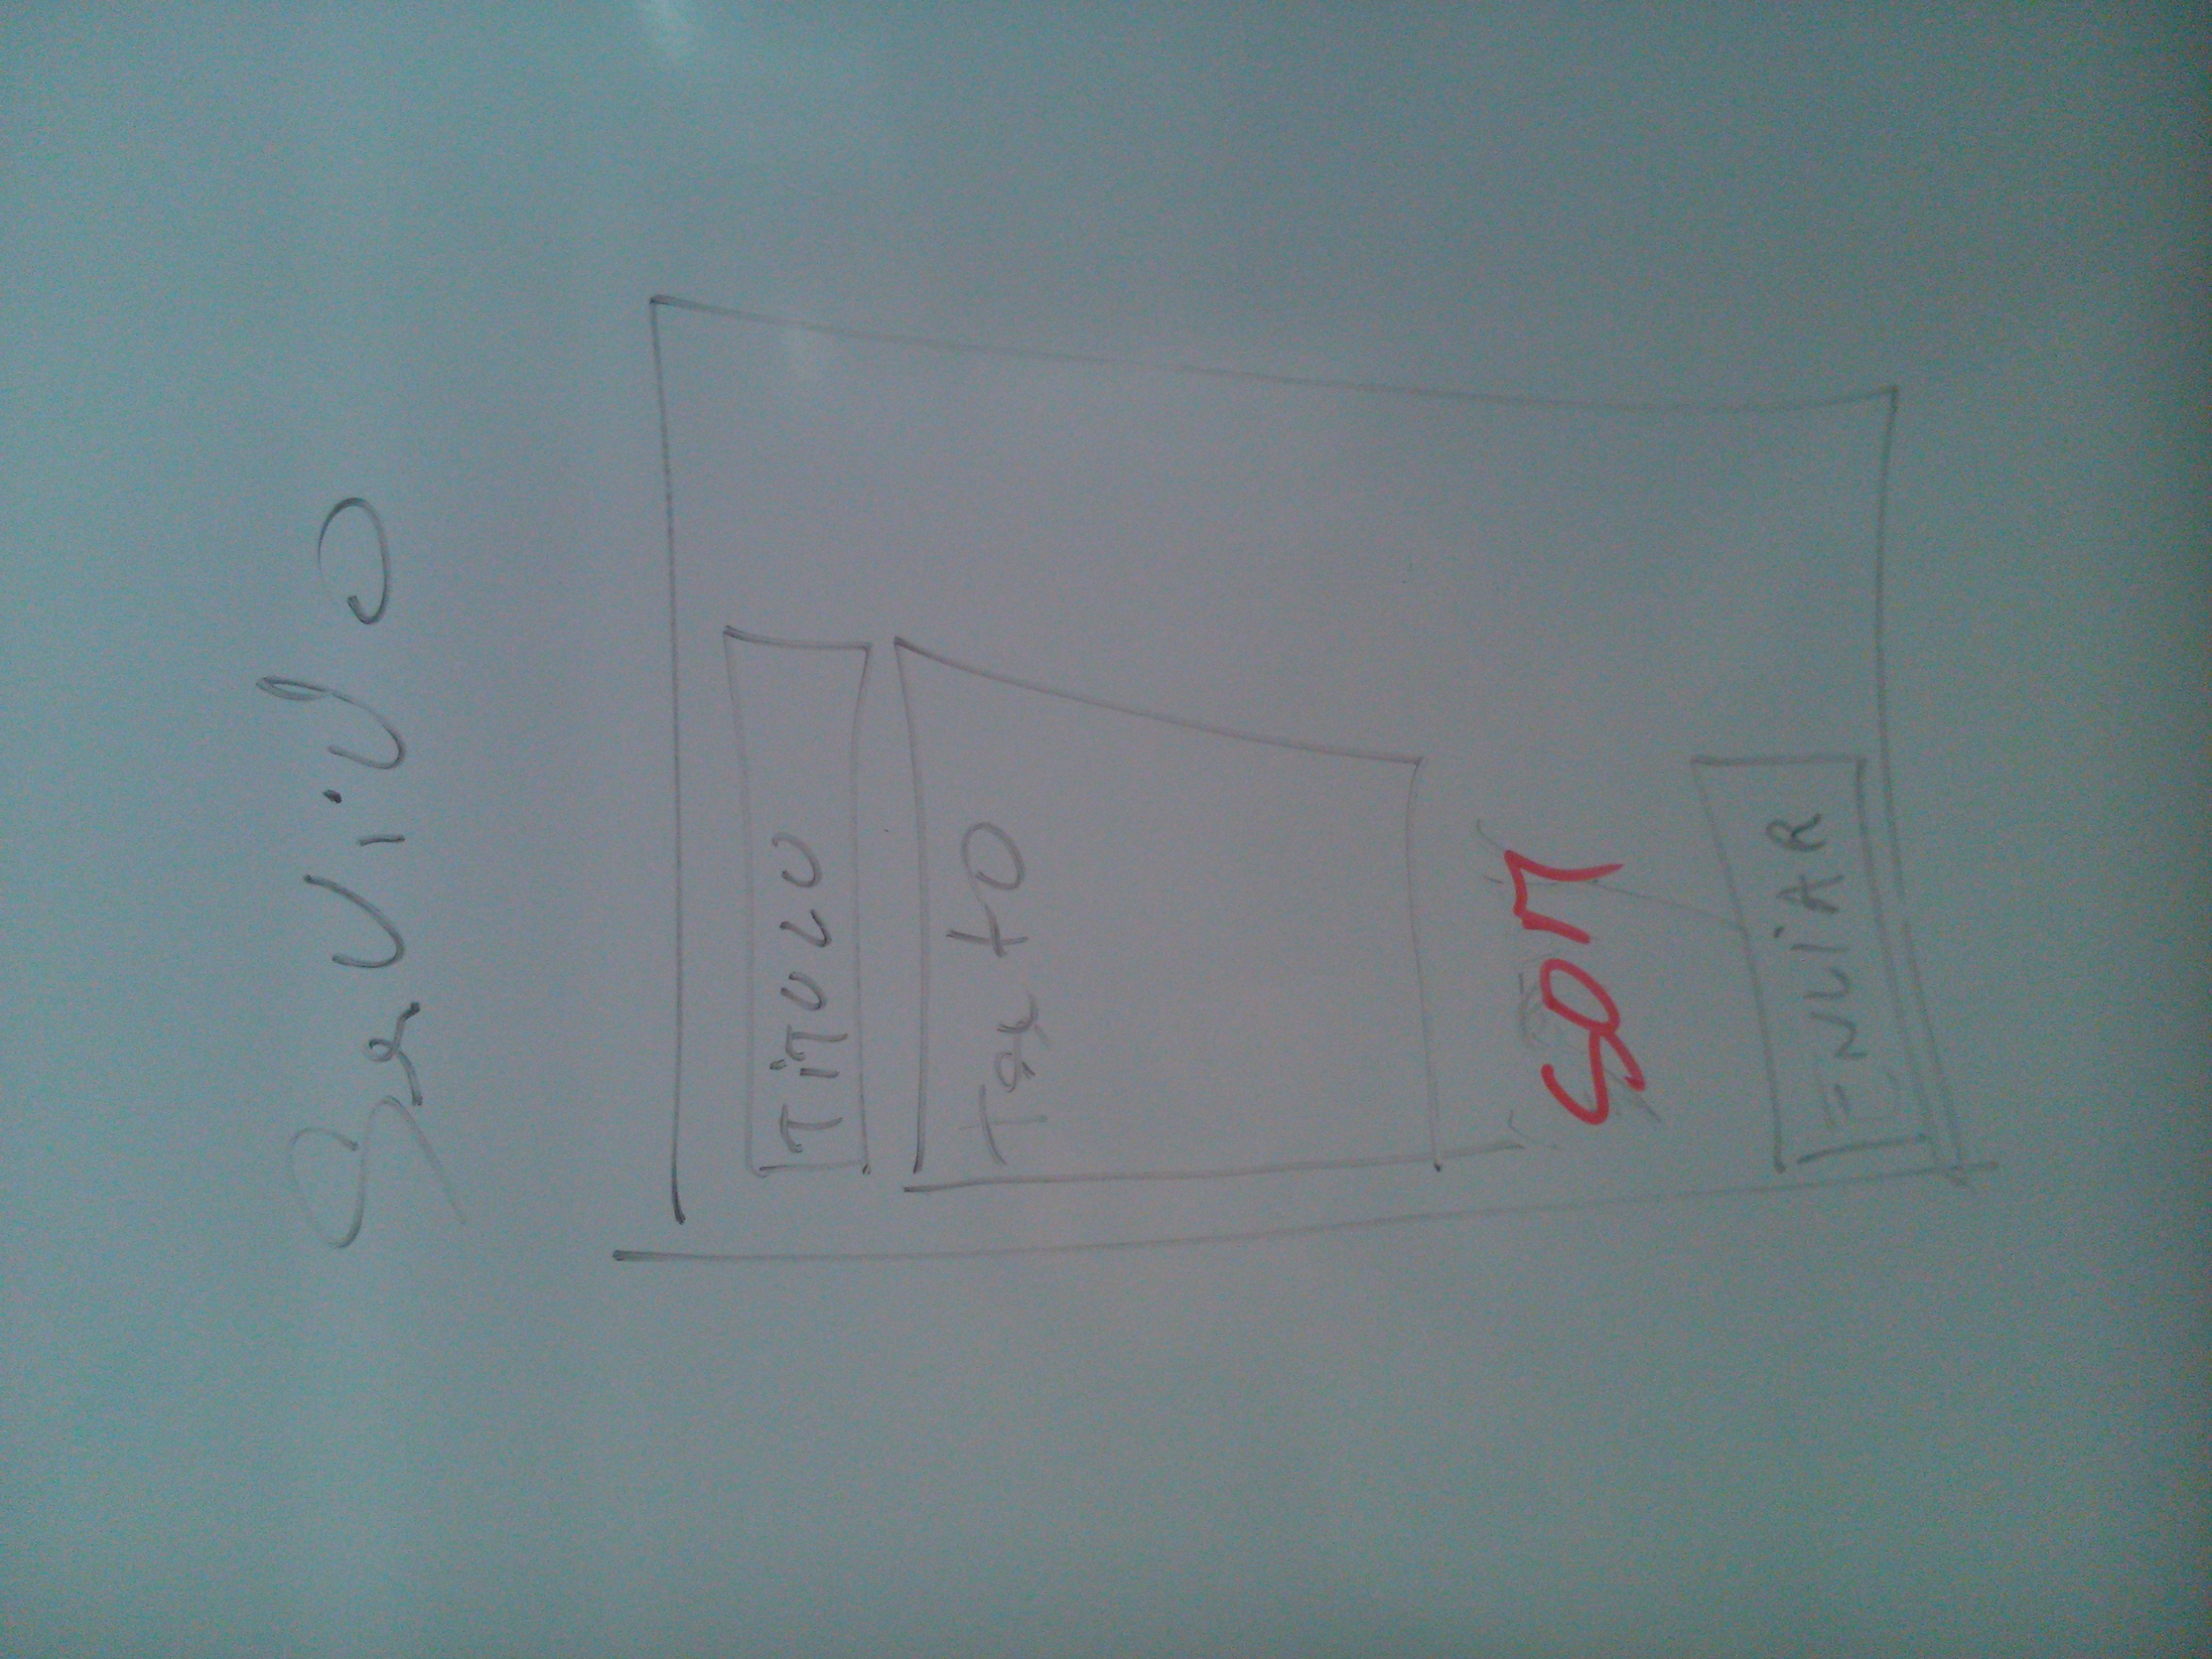 SeVido
TiTULO
Texto
SOM
ENViAR